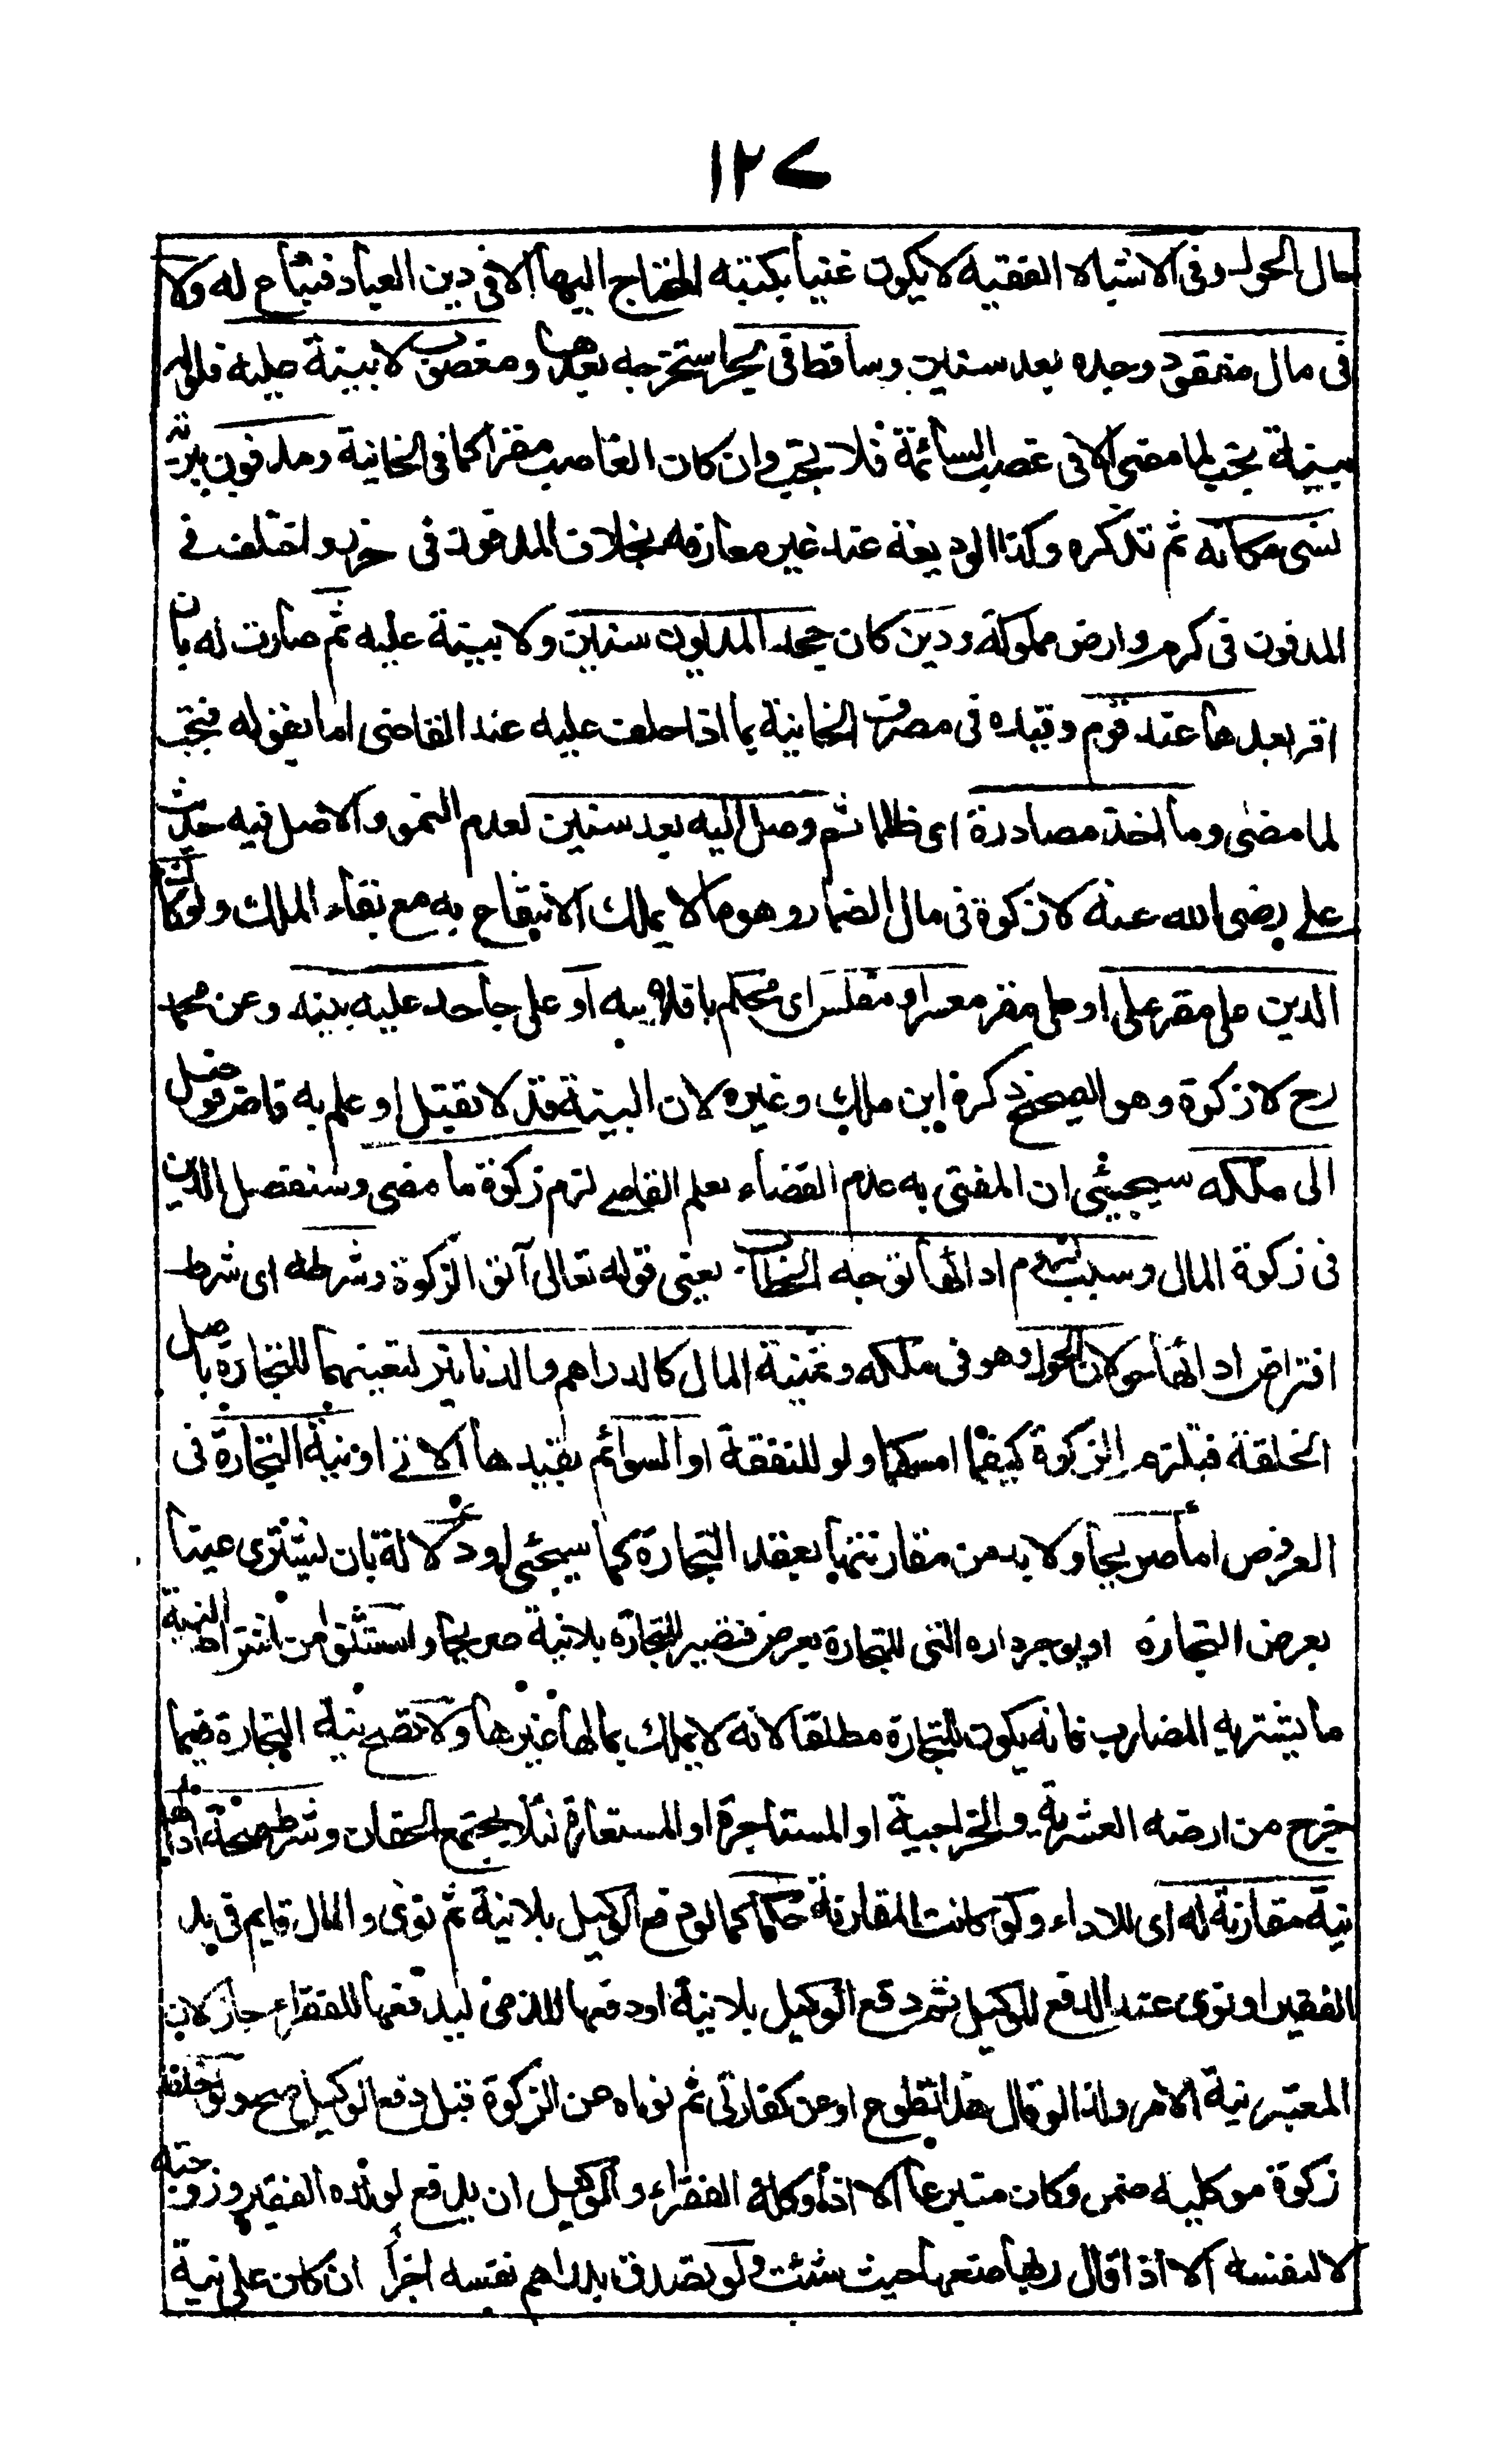 ١٢٧
حال الحول وفى الاشباه الفقيه لا يكون غنيا بكتبه المحتاج اليها الا فى دين العباد فتباع له ولا
فى مال مفقود وجده بعد سنين وساقط فى بحر استخرجه بعدها ومغصوب لا بينة عليه فلو له
بينة تجب لما مضى الا فى غصب السائمة فلا تجب وان كان الغاصب مقرا كما فى الخانية ومدفون ببرية
نسى مكانه ثم تذكره وكذا الوديعة عند غير معارفه بخلاف المدفون فى حرز واختلف فى
المدفون فى كرم وارض مملوكة ودين كان جحده المديون سنين ولا بينة عليه ثم صارت له بان
اقر بعدها عند قوم وقيده فى مصرف الخانية بما اذا حلف عليه عند القاضى اما بقوله فتجب
لما مضى وما اخذ مصادرة اى ظلما ثم وصل اليه بعد سنين لعدم النمو والاصل فيه حديث
على رضى الله عنه لا زكوة فى مال الضمار وهو ما لا يملك الانتفاع به مع بقاء الملك ولو كان
الدين على مقر ملى او على مقر معسر او مفلس اى محكم بافلاسه او على جاحد عليه بينه وعن محمد
رح لا زكوة وهو الصحيح ذكره ابن ملك وغيره لان البينة قد لا تقبل او علم به قاض فوصل
الى ملكه سيجيئى ان المفتى به عدم القضاء بعلم القاضے لزم زكوة ما مضى وسنفصل الدين
فى زكوة المال وسبب لزوم ادائها توجه الخطاب يعنى قوله تعالى آتوا الزكوة وشرطه اى شرط
افتراض ادائها حولان الحول وهو فى ملكه وثمنية المال كالدراهم والدنانير لتعينهما للتجارة باصل
الخلقة فتلزم الزكوة كيفما امسكهما ولو للنفقة او السوائم بقيدها الاتى او نية التجارة فى
العروض اما صريحا ولا بد من مقارنتها بعقد التجارة كما سيجئى او دلالة بان يشترى عينا
بعرض التجارة او يوجر داره التى للتجارة بعرض فتصير للتجارة بلانية صريحا واستثنوا من اشتراط النية
ما يشتريه المضارب فانه يكون للتجارة مطلقا لانه لا يملك بمالها غيرها ولا تصح نية التجارة فيما
خرج من ارضه العشرية والخراجية او المستاجرة او المستعارة لئلا يجتمع الحقان وشرط صحة ادائها
نية مقارنة له اى للاداء ولو كانت المقارنة حكما كما لو دفع الوكيل بلانية ثم نوى والمال قايم فى يد
الفقير او نوى عند الدفع للوكيل ثم دفع الوكيل بلانية او دفعها للذمى ليدفعها للفقراء جاز لان
المعتبر نية الامر ولذا لو قال هذا تطوع او عن كفارتى ثم نواه عن الزكوة قبل دفع الوكيل صح ولو خلط
زكوة موكليه ضمن وكان متبرعا الا اذا وكله الفقراء وللوكيل ان يدفع لولده الفقير وزوجته
لا لنفسه الا اذا قال ربها ضعها حيث شئت ولو تصدق بدراهم نفسه اجزأ ان كان على نية